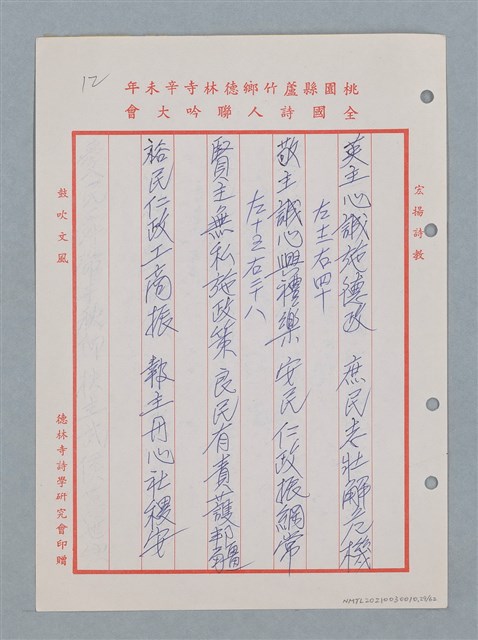 12
桃園縣蘆竹鄉德林寺辛未年
全國詩人聯吟大會
宏揚詩教
英主心誠施德政 庶民老壯解危機
左士右四十
敬主誠心興禮樂 安民仁政振綱常
左十五右三八
賢主無私施政策 良民有責護邦疆
裕民仁政工商振 報主丹心社稷安
鼓吹文風
德林寺詩學研究會印贈